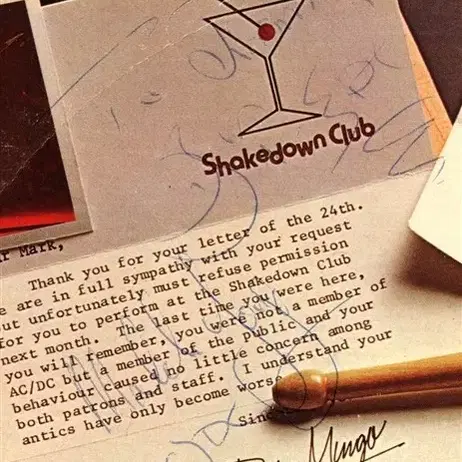 Shakedown Club
Mark,
Thank you for your letter of the 24th.
are in full sympathy with your request
but unfortunately must refuse permission
for you to perform at the Shakedown Club
next month. The last time you were here,
you will remember, you were not a member of
AC/DC but a member of the public and your
behaviour caused no little concern among
both patrons and staff. I understand your
antics have only become worse
Mingo